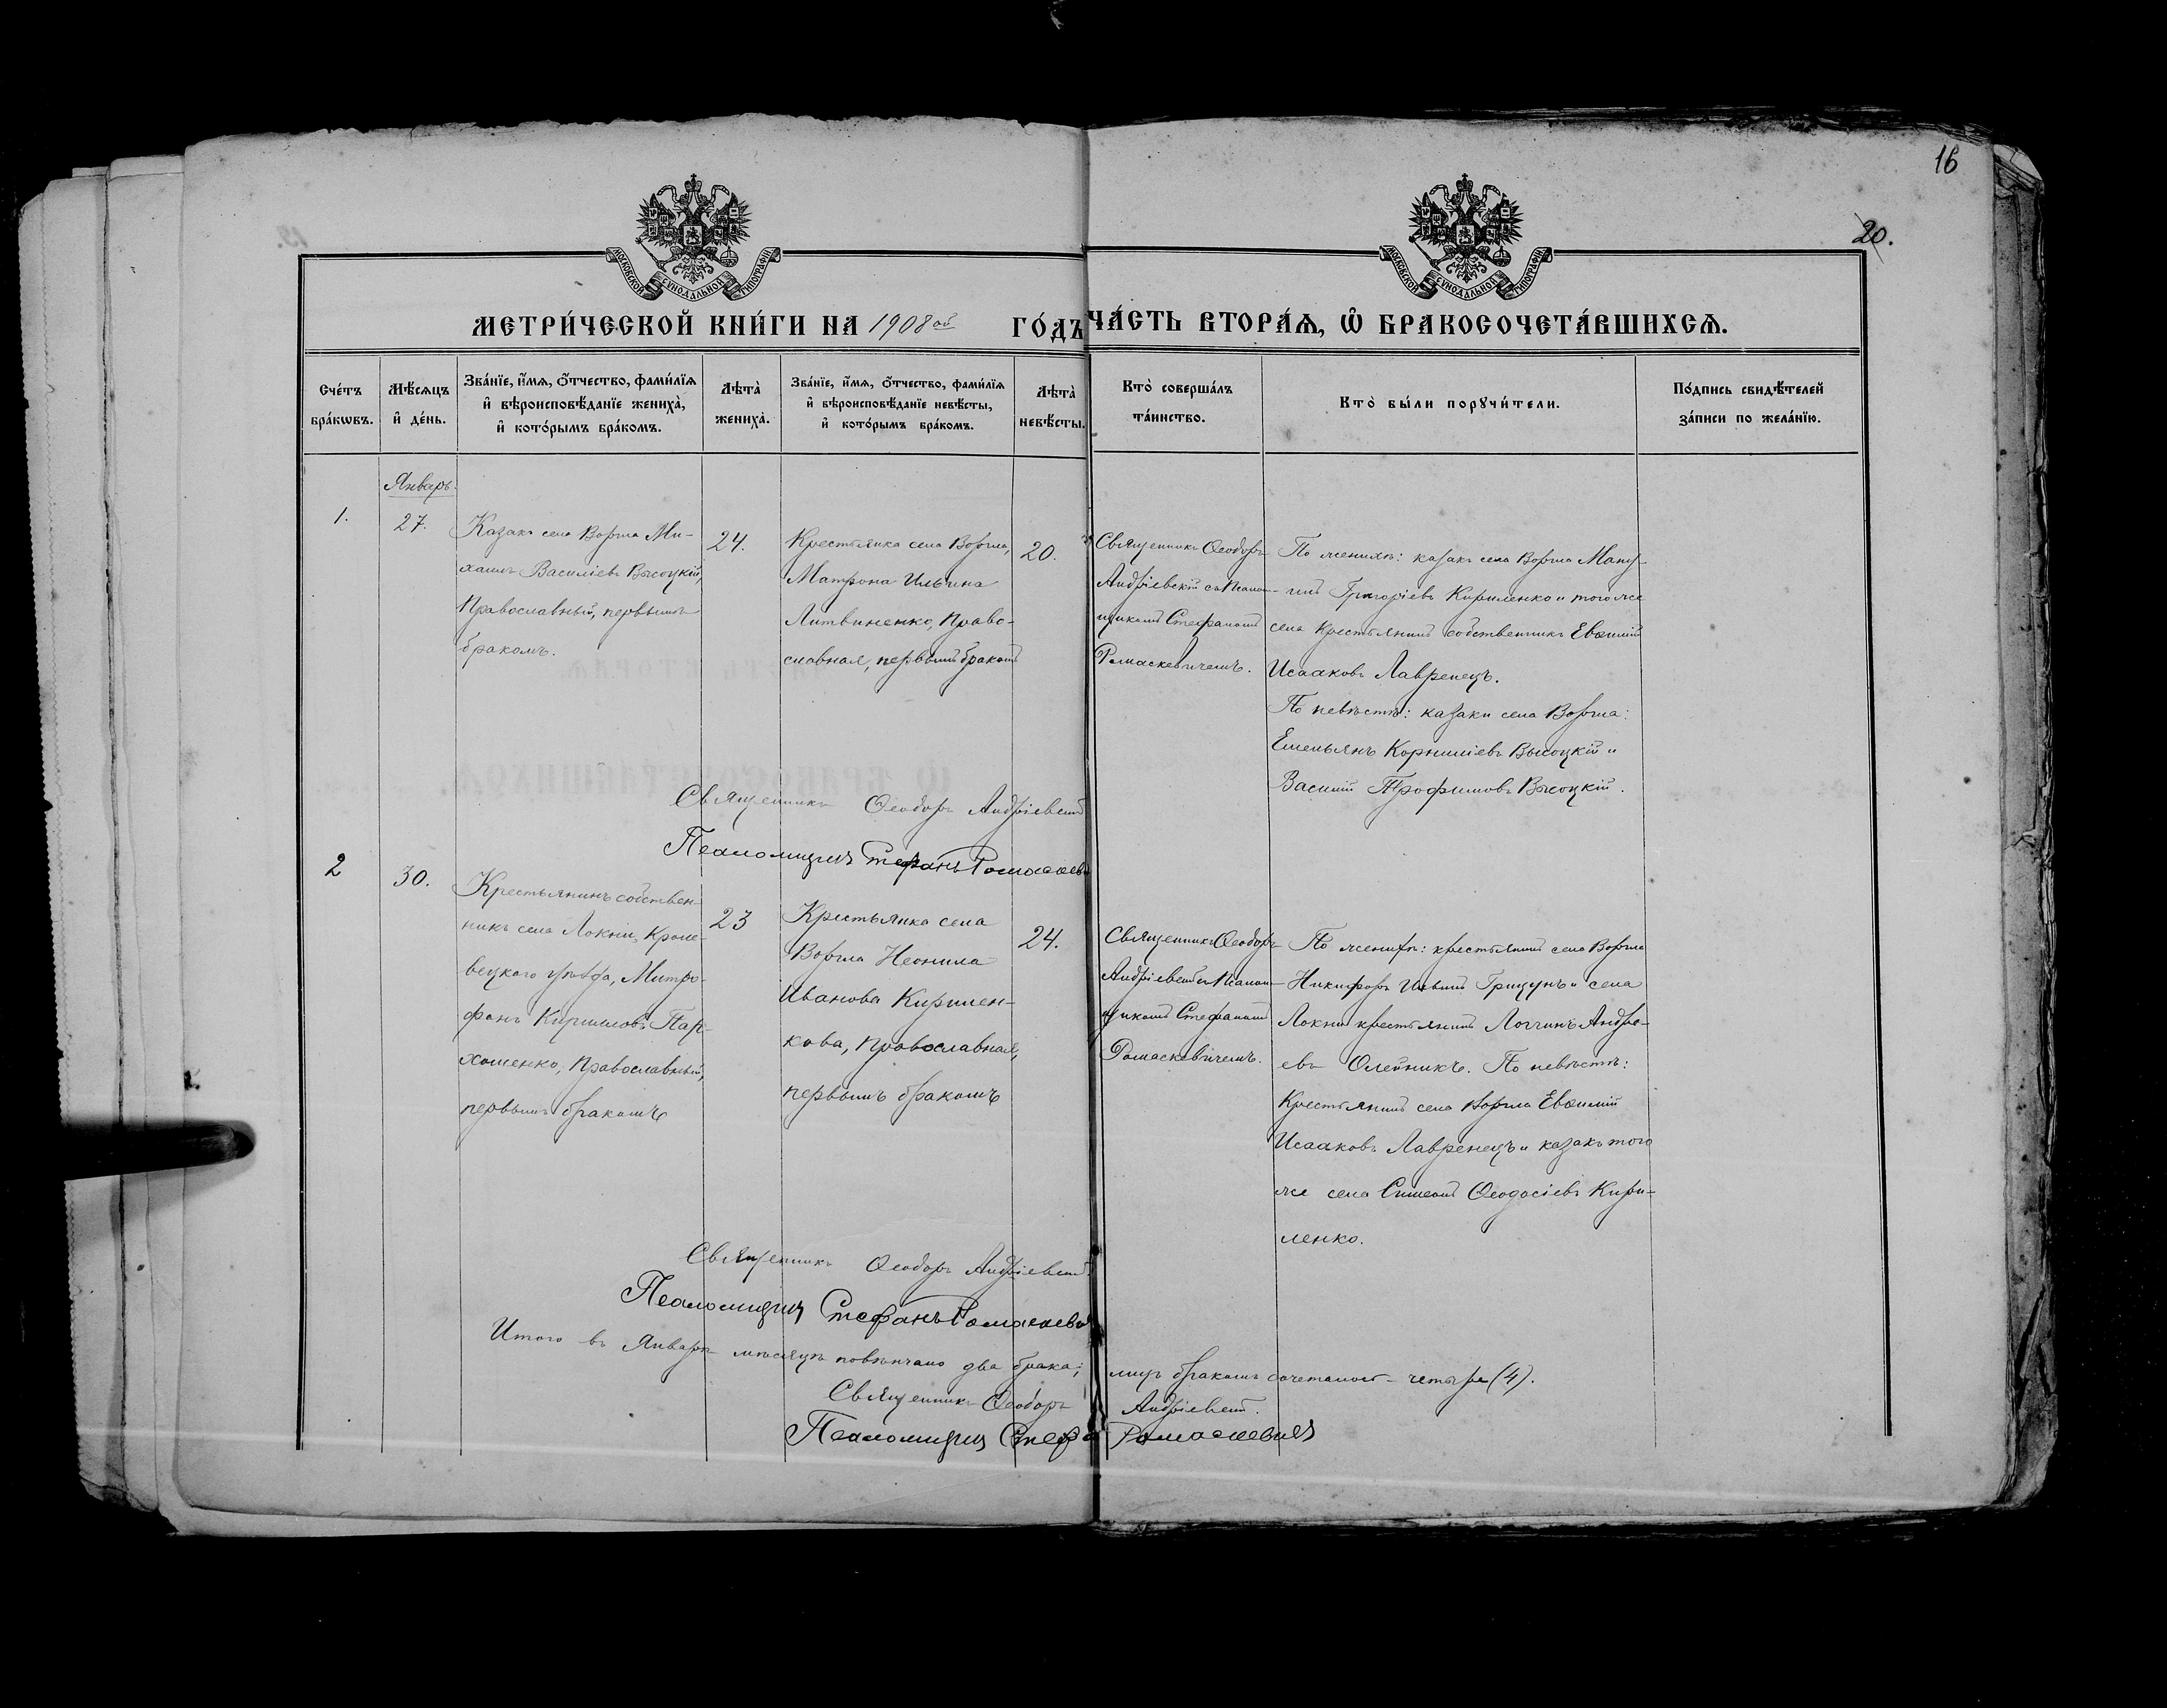 16
20.
МОСКОВСКОЙ СѴНОДАЛЬНОЙ ТИПОГРАФІИ
МОСКОВСКОЙ СѴНОДАЛЬНОЙ ТИПОГРАФІИ
МЕТРИ́ЧЕСКОЙ КНИ́ГИ НА 1908ой ГО́ДЪ
ЧА́СТЬ ВТОРА́Ѧ, Ѽ БРАКОСОЧЕТА́ВШИХСѦ.
Сче́тъ бра́кѡвъ.
Мѣ́сяцъ и҆ де́нь.
Зва́нїе, и҆́мѧ, ѻ҆́тчество, фами́лїѧ
и҆ вѣроисповѣ́данїе жениха̀,
и҆ кото́рымъ бра́комъ.
Лѣта̀ жениха̀.
Зва́нїе, и҆́мѧ, ѻ҆́тчество, фами́лїѧ
и҆ вѣроисповѣ́данїе невѣ́сты,
и҆ кото́рымъ бра́комъ.
Лѣта̀ невѣ́сты.
Кто̀ соверша́лъ
та́инство.
Кто̀ бы́ли порꙋчи́тели.
По́дпись свидѣ́телей
за́писи по жела́нїю.
Январь.
1.
27.
Казакъ села Воргла Ми-
хаилъ Василіевъ Высоцкій,
Православный, первымъ
бракомъ.
24.
Крестьянка села Воргла,
Матрона Ильина
Литвиненко, Право-
славная, первымъ бракомъ
20.
Священникъ Ѳеодоръ
Андріевскій съ Псалом-
щикомъ Стефаномъ
Ромаскевичемъ.
По женихѣ: казакъ села Воргла Ману-
илъ Григоріевъ Кириленко и того же
села Крестьянинъ собственникъ Евѳимій
Исааковъ Лавренецъ.
По невѣстѣ: казаки села Воргла:
Емельянъ Корниліевъ Высоцкій и
Василій Трофимовъ Высоцкій.
Священникъ Ѳеодоръ Андріевскій
Псаломщикъ Стефанъ Ромаскеви
2
30.
Крестьянинъ собствен-
никъ села Локни, Кроле-
вецкаго уѣзда, Митро-
фанъ Кирилловъ Пар-
хоменко, Православный,
первымъ бракомъ
23
Крестьянка села
Воргла Неонила
Иванова Кирилен-
кова, Православная,
первымъ бракомъ
24.
Священникъ Ѳеодоръ
Андріевскій съ Псалом-
щикомъ Стефаномъ
Ромаскевичемъ.
По женихѣ: крестьянинъ села Воргла
Никифоръ Ильинъ Грицунъ и села
Локни крестьянинъ Логгинъ Андре-
евъ Олейникъ. По невѣстѣ:
Крестьянинъ села Воргла Евѳимій
Исааковъ Лавренецъ и казакъ того
же села Симеонъ Ѳеодосіевъ Кири-
ленко.
Священникъ Ѳеодоръ Андріевскій.
Псаломщикъ Стефанъ Ромаскеви
Итого въ Январѣ мѣсяцѣ повѣнчано два брака; лицъ бракомъ сочеталось - четыре (4).
Священникъ Ѳеодоръ Андріевскій.
Псаломщикъ Стеф Ромаскевичъ